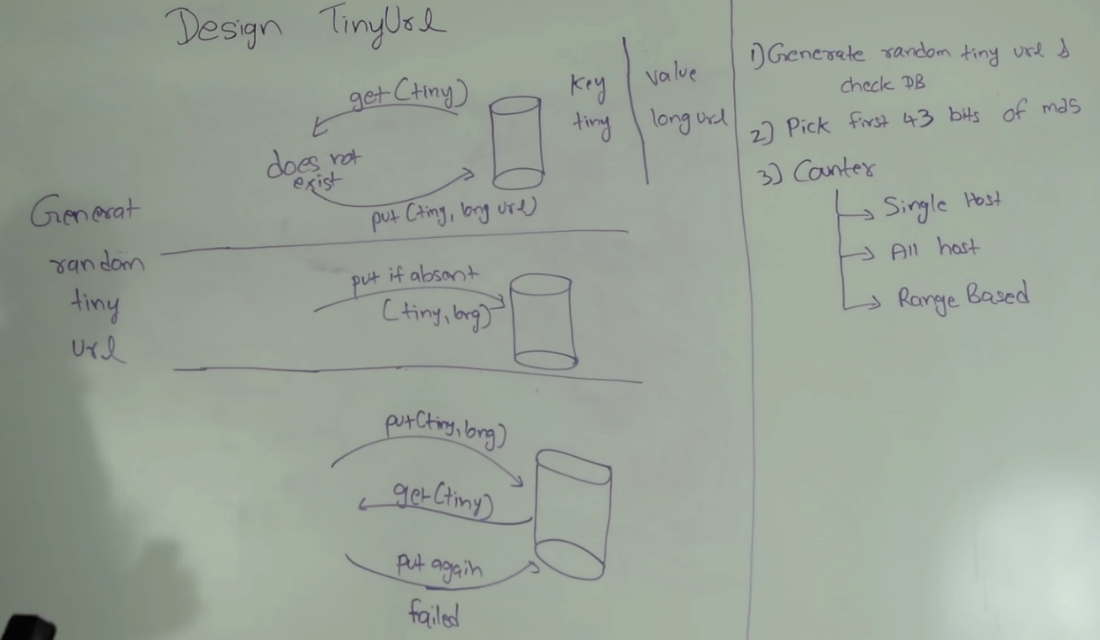 Design TinyUrl
get (tiny)
does not
exist
put (tiny, long url)
key value
tiny long url
Generat
random
tiny
url
put if absant
(tiny, long)
put (tiny, long)
get (tiny)
put again
failed
1) Generate random tiny url &
check DB
2) Pick first 43 bits of md5
3) Counter
Single Host
All host
Range Based